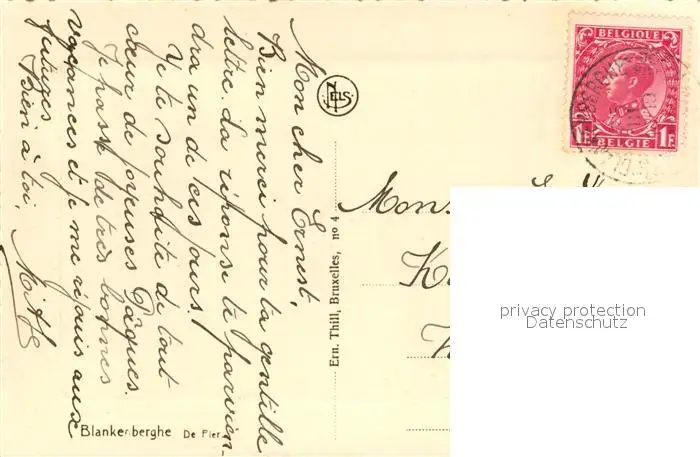 Mon cher Ernest,
Bien merci pour ta gentille
lettre. La réponse te parvien-
dra un de ces jours!
Je te souhaite de tout
cœur de joyeuses Pâques.
Je passe de très bonnes
vacances et je me réjouis aux
Bien à toi,
NELS
Ern. Thill, Bruxelles, no 4
Blankenberghe De Pier
BELGIQUE
1F 1F
BELGIE
Mons
privacy protection
Datenschutz